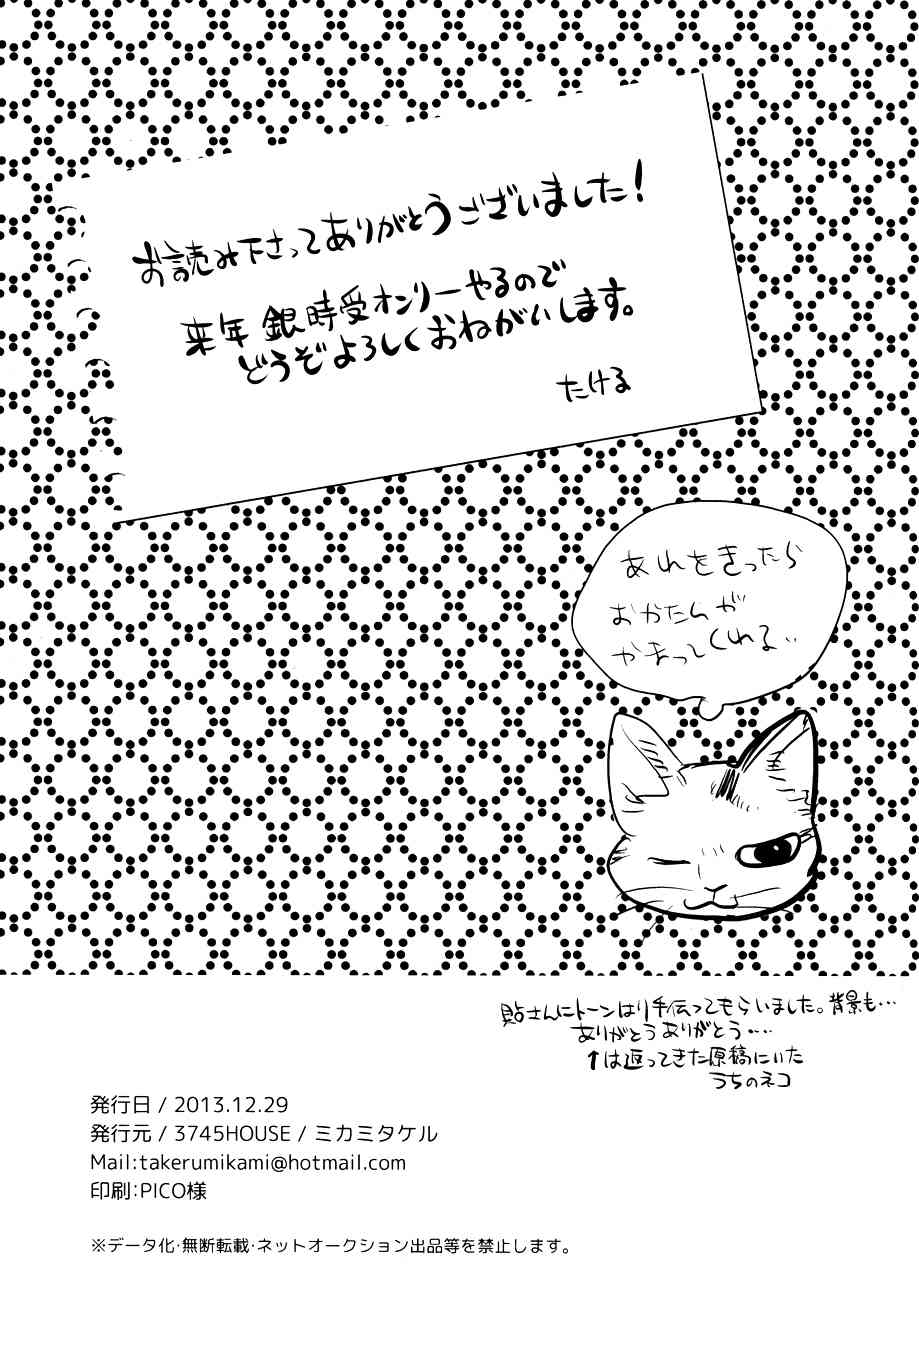 お読み下さってありがとうございました!
来年 銀時受オンリーやるので
どうぞよろしくおねがいします。
たける
あれをきったら
おかたんが
かまってくれる..
貼さんにトーンはり手伝ってもらいました。背景も…
ありがとうありがとう….
↑は返ってきた原稿にいた
うちのネコ
発行日 / 2013.12.29
発行元 / 3745HOUSE / ミカミタケル
Mail:takerumikami@hotmail.com
印刷:PICO様
※データ化・無断転載・ネットオークション出品等を禁止します。